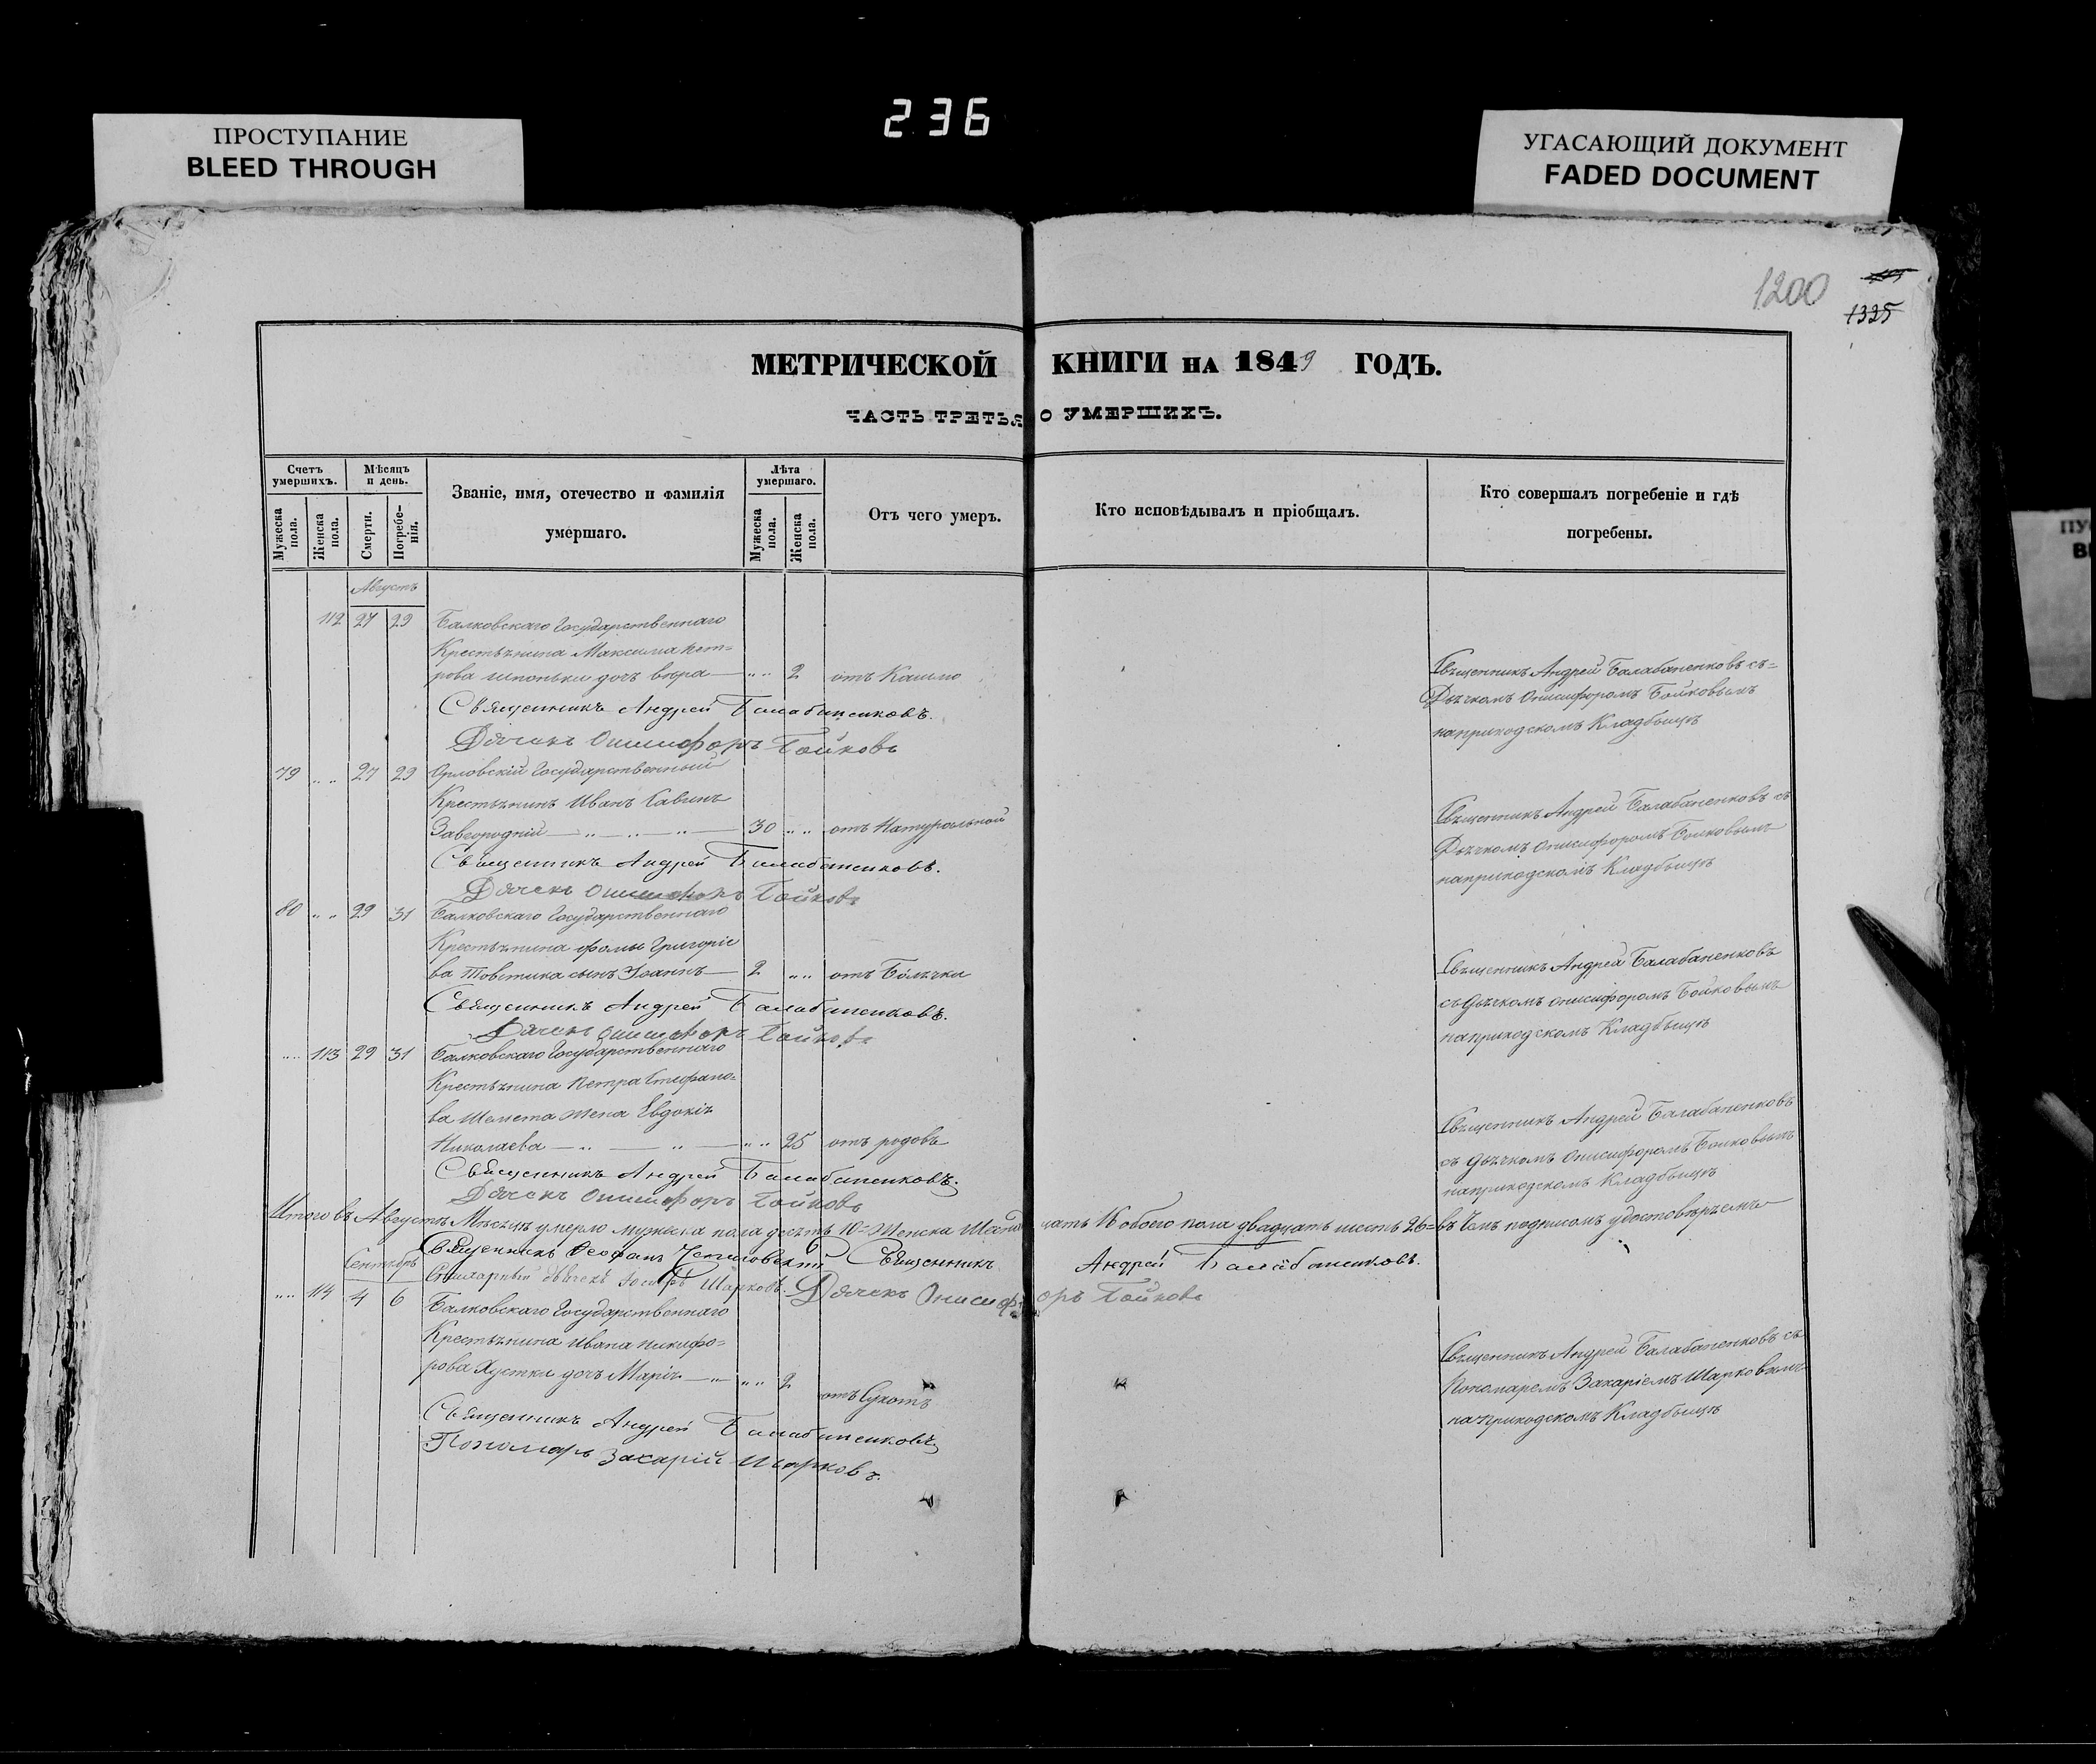 236
ПРОСТУПАНИЕ
BLEED THROUGH
УГАСАЮЩИЙ ДОКУМЕНТ
FADED DOCUMENT
1200
1325
МЕТРИЧЕСКОЙ КНИГИ на 1849 ГОДЪ.
ЧАСТЬ ТРЕТЬЯ О УМЕРШИХЪ.
Счетъ умершихъ.
Мужеска пола.
Женска пола.
Мѣсяцъ и день.
Смерти.
Погребенія.
Званіе, имя, отечество и фамилія
умершаго.
Лѣта умершаго.
Мужеска пола.
Женска пола.
Отъ чего умеръ.
Кто исповѣдывалъ и пріобщалъ.
Кто совершалъ погребеніе и гдѣ
погребены.
Августъ
112 27 29 Балковскаго Государственнаго
Крестьянина Максима Пет=
рова Шпоньки дочь Вѣра „ „ 2 отъ Кашлю
Священникъ Андрей Балабаненковъ съ=
Дьячкомъ Онисифоромъ Бойковымъ
на приходскомъ Кладбищѣ
Священникъ Андрей Балабаненковъ.
Дячекъ Онисифоръ Бойковъ
79 „ „ 27 29 Орловскій Государственный
Крестьянинъ Иванъ Савинъ
Завгородній „ „ „ 30 „ „ отъ Натуральной
Священникъ Андрей Балабаненковъ съ
Дьячкомъ Онисифоромъ Бойковымъ
на приходскомъ Кладбищѣ
Священникъ Андрей Балабаненковъ.
Дячекъ Онисифоръ Бойковъ
80 „ „ 29 31 Балковскаго Государственнаго
Крестьянина Фомы Григорie
ва Товстика сынъ Іоаннъ 2 „ „ отъ Болячки
Священникъ Андрей Балабаненковъ
съ Дьячкомъ Онисифоромъ Бойковымъ
на приходскомъ Кладбищѣ
Священникъ Андрей Балабаненковъ.
Дячекъ Онисифоръ Бойковъ
„ „ 113 29 31 Балковскаго Государственнаго
Крестьянина Петра Стефано=
ва Шемета жена Евдокія
Николаева „ „ „ „ 25 отъ родовъ
Священникъ Андрей Балабаненковъ
съ Дьячкомъ Онисифоромъ Бойковымъ
на приходскомъ Кладбищѣ
Священникъ Андрей Балабаненковъ.
Дячекъ Онисифоръ Бойковъ
Итого въ Августѣ Мѣсяцѣ умерло мужеска пола десять 10= Женска Шестнадцать 16 обоего пола двадцать шесть 26= въ Чемъ подписомъ удостовѣряемъ
Священникъ Феофанъ Священникъ Андрей Балабаненковъ.
Дьячекъ Іосифъ Шарковъ. Дячекъ Онисифоръ Бойковъ
Сентябрь
„ „ 114 4 6 Балковскаго Государственнаго
Крестьянина Ивана Никифо=
рова Хустки дочь Марія „ „ „ 2 отъ Сухотъ
Священникъ Андрей Балабаненковъ съ
Пономаремъ Захаріемъ Шарковымъ
на приходскомъ Кладбищѣ
Священникъ Андрей Балабаненковъ
Пономарь Захарій Шарковъ.